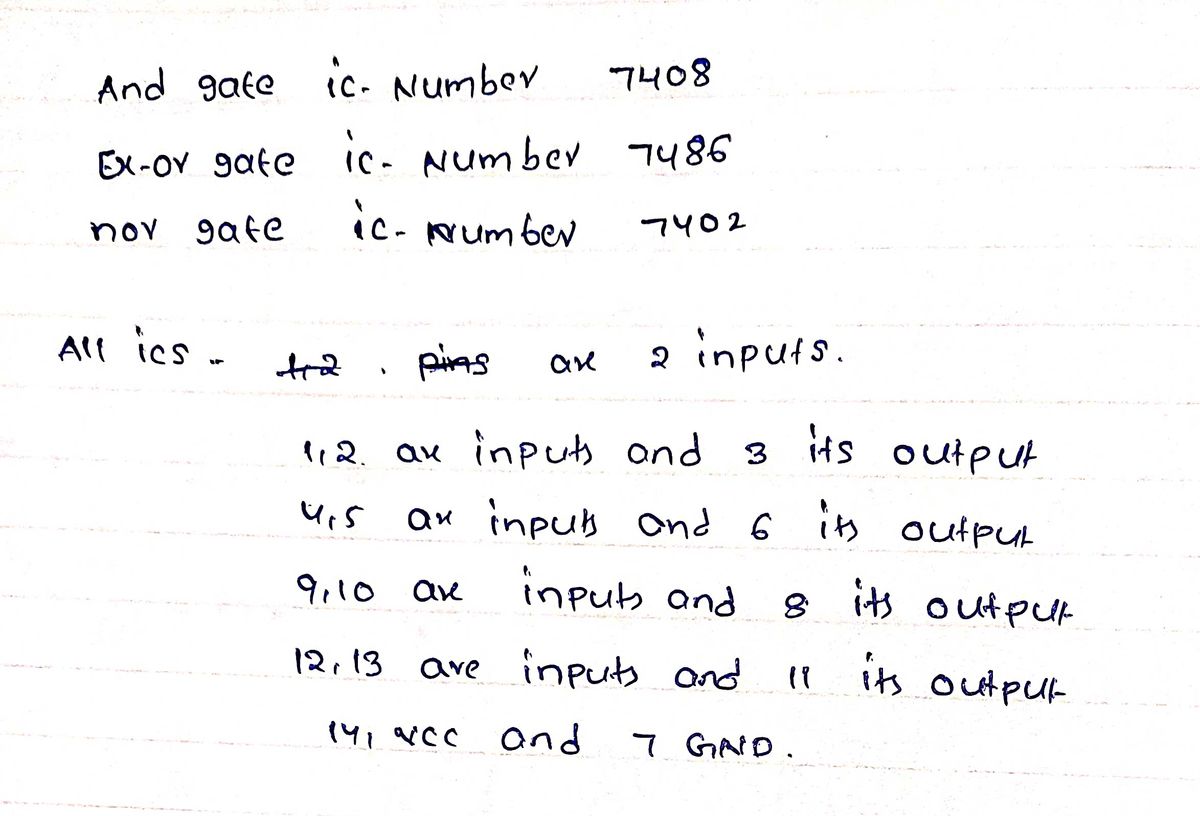 And gate ic. Number 7408
Ex-or gate ic- Number 7486
nor gate ic- Number 7402
All ics - 1,2 . pins are 2 inputs.
1,2. are inputs and 3 its output
4,5 are inputs and 6 its output
9,10 are inputs and 8 its output
12,13 are inputs and 11 its output
14, VCC and 7 GND.